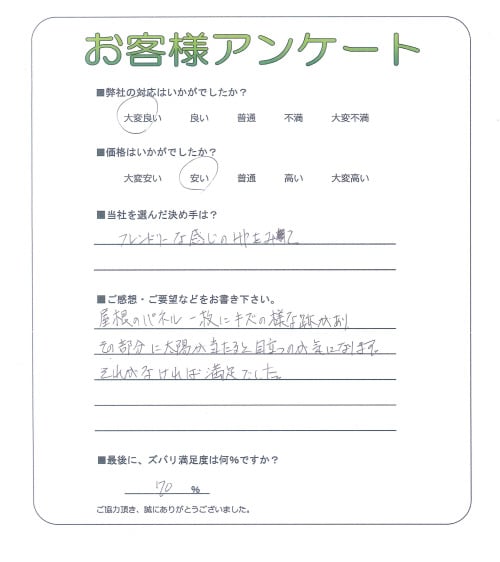 お客様アンケート
■弊社の対応はいかがでしたか？
大変良い 良い 普通 不満 大変不満
■価格はいかがでしたか？
大変安い 安い 普通 高い 大変高い
■当社を選んだ決め手は？
フレンドリーな感じのHPをみて
■ご感想・ご要望などをお書き下さい。
屋根のパネル一枚にキズの様な跡があり
その部分に太陽が当たると目立つのが気になります。
それがなければ満足でした。
■最後に、ズバリ満足度は何％ですか？
70 %
ご協力頂き、誠にありがとうございました。